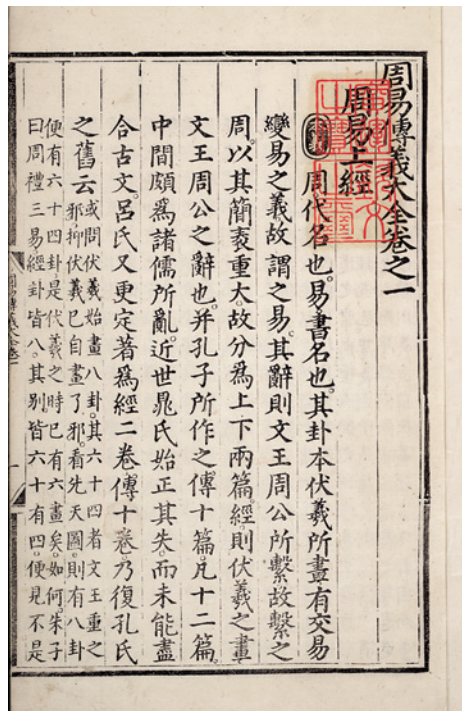 周易傳義大全卷之一
周易上經
周代名也易書名也其卦本伏羲所畫有交易
變易之義故謂之易其辭則文王周公所繫故繫之
周以其簡袠重大故分爲上下兩篇經則伏羲之畫
文王周公之辭也并孔子所作之傳十篇凡十二篇
中間頗爲諸儒所亂近世晁氏始正其失而未能盡
合古文呂氏又更定著爲經二卷傳十卷乃復孔氏
之舊云
或問伏羲始畫八卦其六十四者文王重之
邪抑伏羲已自畫了邪看先天圖則有八卦
便有六十四卦是伏羲之時已有六畫矣如何朱子
曰周禮三易經卦皆八其別皆六十有四便見不是